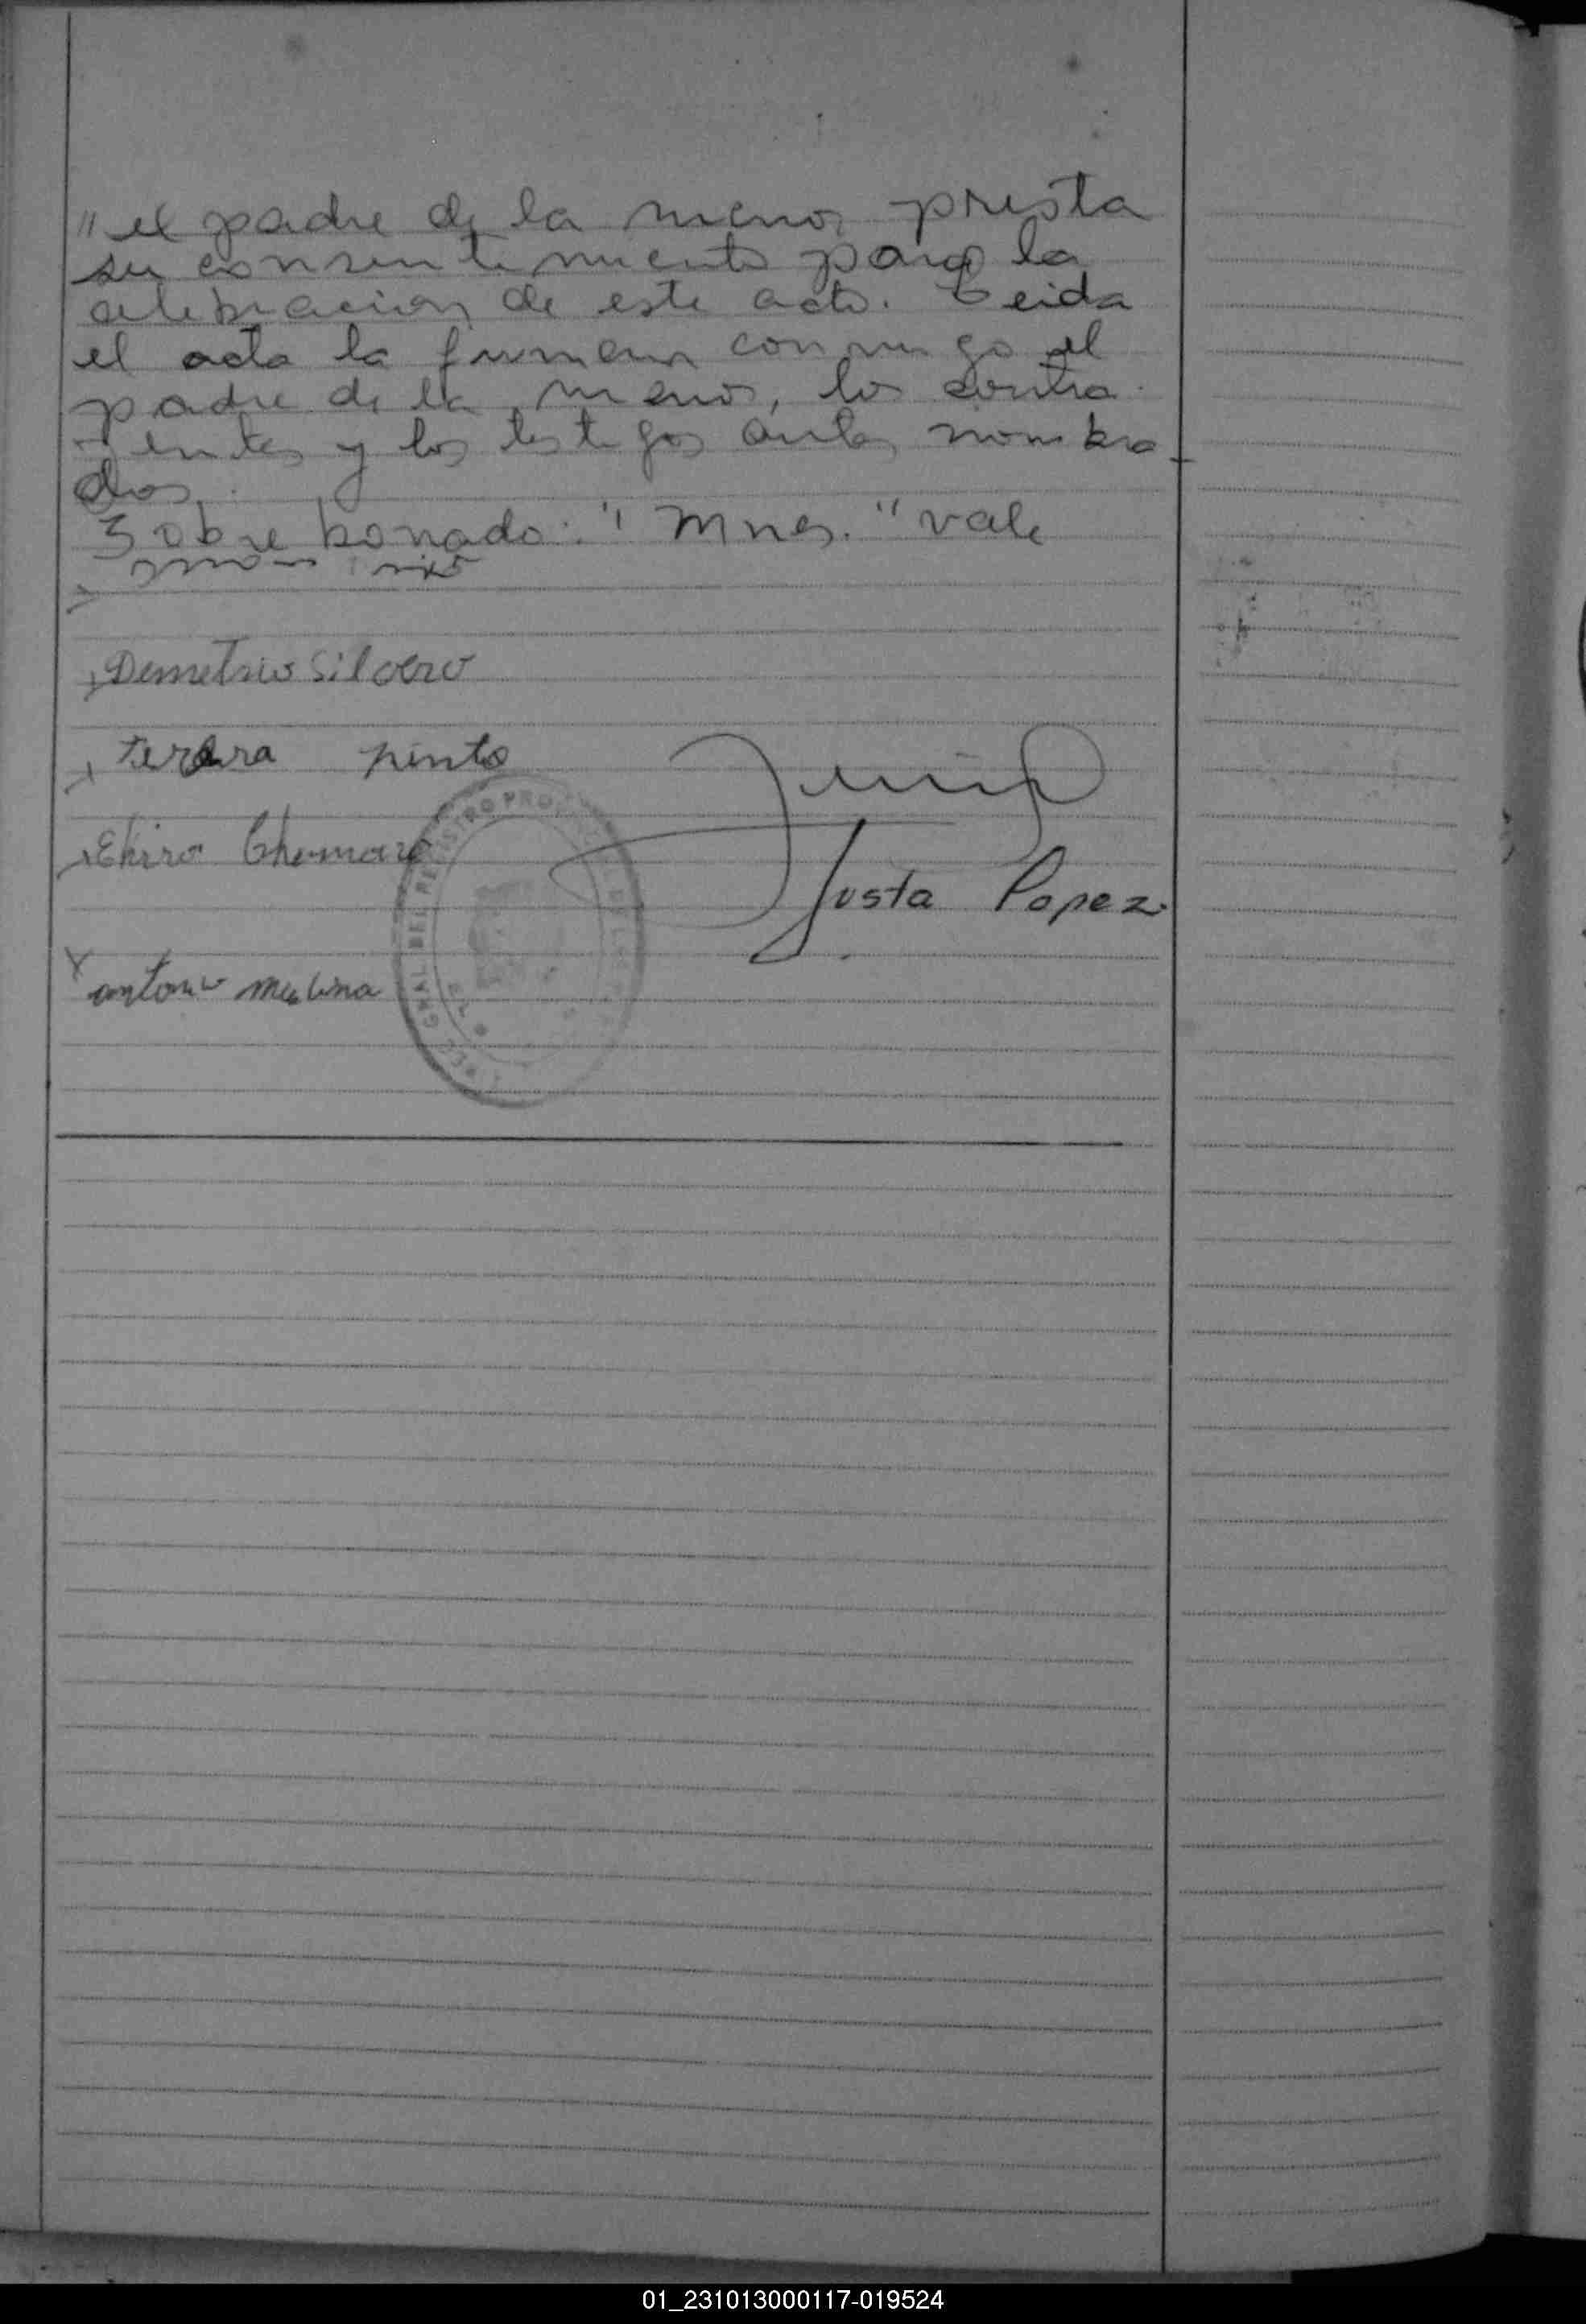 " el padre de la menor presta
su consentimiento para la
celebracion de este acto. Leida
el acta la firman conmigo el
padre de la menor, los contra
yentes y los testigos antes nombra_
dos.
Sobre borrado: "Mnes." vale
Demetrio Silvero
terera pinto
Justa Lopez.
antonio
DEL REGISTRO PRO
GRAL
01_231013000117-019524